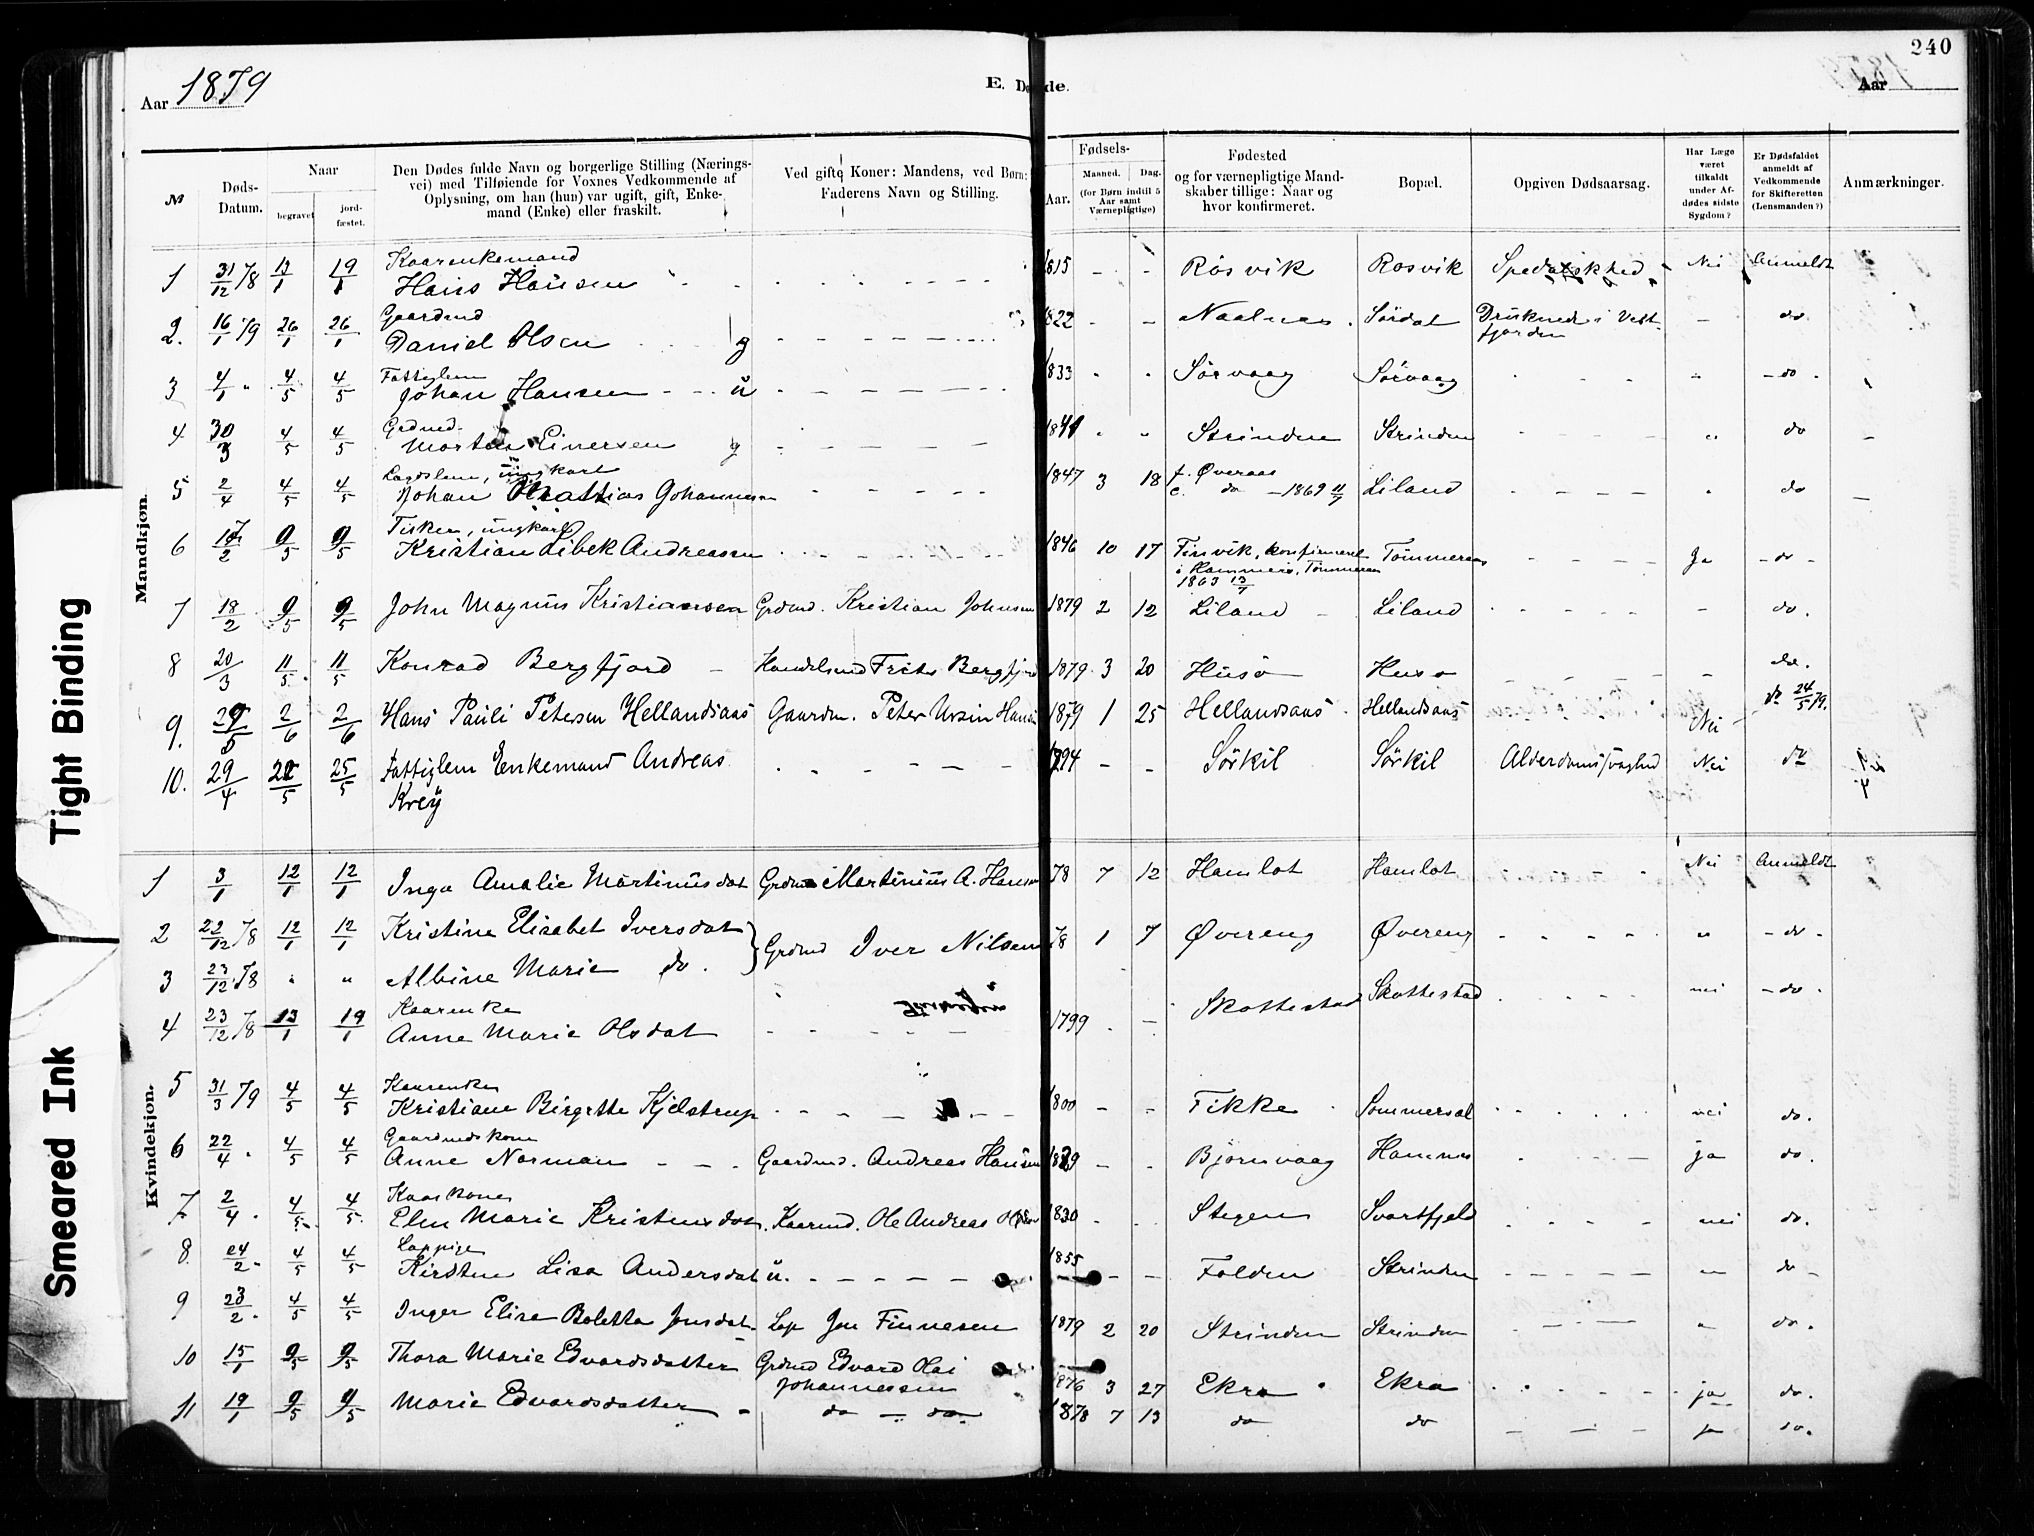 240
Aar 1879
E. Døde.
Aar
Tight Binding
Smeared Ink
№
Døds-Datum.
Naar
begravet
jord-fæstet.
Den Dødes fulde Navn og borgerlige Stilling (Nærings-
vei) med Tilføiende for Voxnes Vedkommende af
Oplysning, om han (hun) var ugift, gift, Enke-
mand (Enke) eller fraskilt.
Ved gifte Koner: Mandens, ved Børn:
Faderens Navn og Stilling.
Fødsels-
Aar.
Maaned.
Dag.
(for Børn indtil 5
Aar samt
Værnepligtige)
Fødested
og for værnepligtige Mand-
skaber tillige: Naar og
hvor konfirmeret.
Bopæl.
Opgiven Dødsaarsag.
Har Læge
været
tilkaldt
under Af-
dødes sidste
Sygdom?
Er Dødsfaldet
anmeldt af
Vedkommende
for Skifteretten
(Lensmanden?)
Anmærkninger.
Mandkjøn.
Kaarenkemand
1 31/12 78 13/1 19/1 Hans Hansen 1815 - - Rosvik Rosvik Spedalskhed Nei Anmeldt
Gaardmd
2. 16/1 79 26/1 26/1 Daniel Olsen g 1822 - - Naalnes Sørdal Druknede i Vest-
fjorden - do
Fattiglem
3 4/1 " 4/5 4/5 Johan Hansen u 1833 " " Sørvaag Sørvaag " do
Grdmd.
4 30/3 4/5 4/5 Morten Einersen g 1841 " " Strinden Strinden " do
Lægdslem, ungkarl
5 2/4 4/5 4/5 Johan Mathias Johannesen 1847 3 18 f. Øveraas
c. do - 1869 11/7 Liland " do
Fisker, ungkarl
6 17/2 9/5 9/5 Kristian Libek Andreassen 1846 10 17 Finvik, konfirmeret
i Hammerø, Tømmeraas
1863 13/7 Tømmeraas Ja - do -
7 18/2 9/5 9/5 John Magnus Kristiansen Grdmd. Kristian Johnsen 1879 2 12 Liland Liland - do.
8 20/3 11/5 11/5 Konrad Bergfjord Handelsmd Frits Bergfjord 1879 3 20 Husø Husø - do.
9. 29/5 2/6 2/6 Hans Pauli Petersen Hellandsaas Gaardm. Peter Ursin Hansen 1879 1 25 Hellandsaas Hellandsaas Nei do 24/5 79.
10. 29/4 22/5 25/5 Fattiglem Enkemand Andreas
Krey 1794 - - Sørkil Sørkil Alderdomssvaghed Nei do
Kvindekjøn.
1 3/1 12/1 12/1 Inga Amalie Martinusdat Grdmd Martinius A. Hansen 78 7 12 Hamlot Hamlot Nei Anmeldt
2 22/12 78 12/1 12/1 Kristine Elisabet Iversdat Grdmd Iver Nilsen 78 1 7 Øvereng Øvereng " - do -
3 23/12 78 " " Albine Marie do.
Kaarenke
4 23/12 78 13/1 19/1 Anne Marie Olsdat 1799 - - Skottestad Skottestad nei - do -
Kaarenke
5 31/3 79 4/5 4/5 Kristiane Birgitte Kjelstrup 1800 - - Fikke Sommersel nei do.
Gaardmdskone
6 22/4 " 4/5 4/5 Anne Norman Gaardmd. Andreas Hansen Bjørnvaag Hamnes ja do.
Kaarkone
7 2/4 " 4/5 4/5 Elen Marie Kristensdat. Kaarmd. Ole Andreas 1830 - - Stegen Svartfjeld nei do.
Lappige
8. 24/2 " 4/5 4/5 Kirsten Lisa Andersdat u. 1855 - - Folden Strinden - do -
9 23/2 " 4/5 4/5 Inger Elisa Boletta Jonsdat. Lap Jon Finnesen 1879 2 20 Strinden Strinden " do.
10 15/1 9/5 9/5 Thora Marie Edvardsdatter Grdmd Edvard Olai
Johannessen 1876 3 27 Ekra Ekra ja do.
11 19/1 9/5 9/5 Marie Edvardsdatter do - do 1878 7 13 do do ja do.